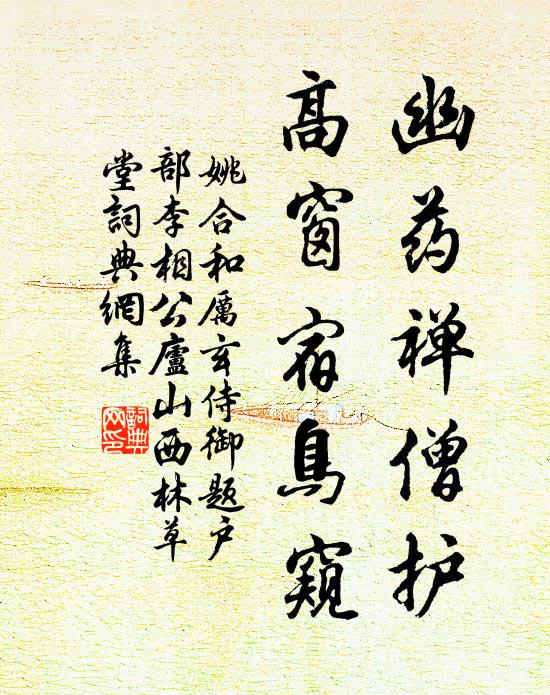 幽药禅僧护
高窗宿鸟窥
姚合和厉玄侍御题户
部李相公廬山西林草
堂詞典網集
詞典
网印